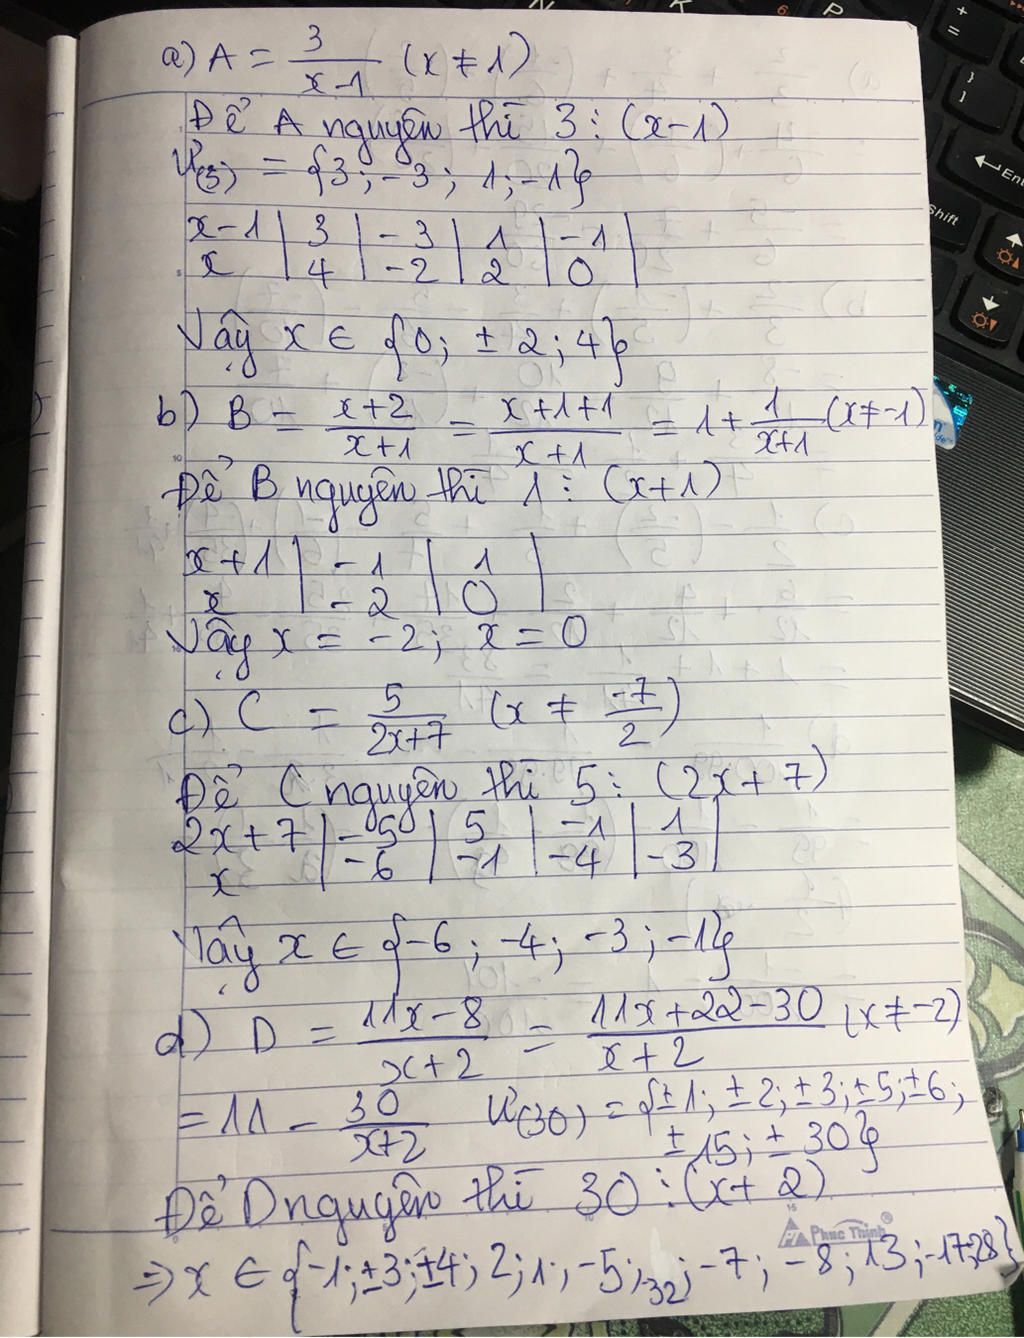 a) A = 3/(x-1) (x ≠ 1)
Để A nguyên thì 3 ⋮ (x-1)
Ư(3) = {3; -3; 1; -1}
x-1 | 3 | -3 | 1 | -1 |
x | 4 | -2 | 2 | 0 |
Vậy x ∈ {0; ±2; 4}
b) B = (x+2)/(x+1) = (x+1+1)/(x+1) = 1 + 1/(x+1) (x ≠ -1)
Để B nguyên thì 1 ⋮ (x+1)
x+1 | -1 | 1 |
x | -2 | 0 |
Vậy x = -2; x = 0
c) C = 5/(2x+7) (x ≠ -7/2)
Để C nguyên thì 5 ⋮ (2x+7)
2x+7 | -5 | 5 | -1 | 1 |
x | -6 | -1 | -4 | -3 |
Vậy x ∈ {-6; -4; -3; -1}
d) D = (11x-8)/(x+2) = (11x+22-30)/(x+2) (x ≠ -2)
= 11 - 30/(x+2) Ư(30) = {±1; ±2; ±3; ±5; ±6;
±15; ±30}
Để D nguyên thì 30 ⋮ (x+2)
Phuc Thinh®
⇒ x ∈ {-1; ±3; ±4; 2; 1; -5; -32; -7; -8; 13; -17; 28}
Enter
Shift